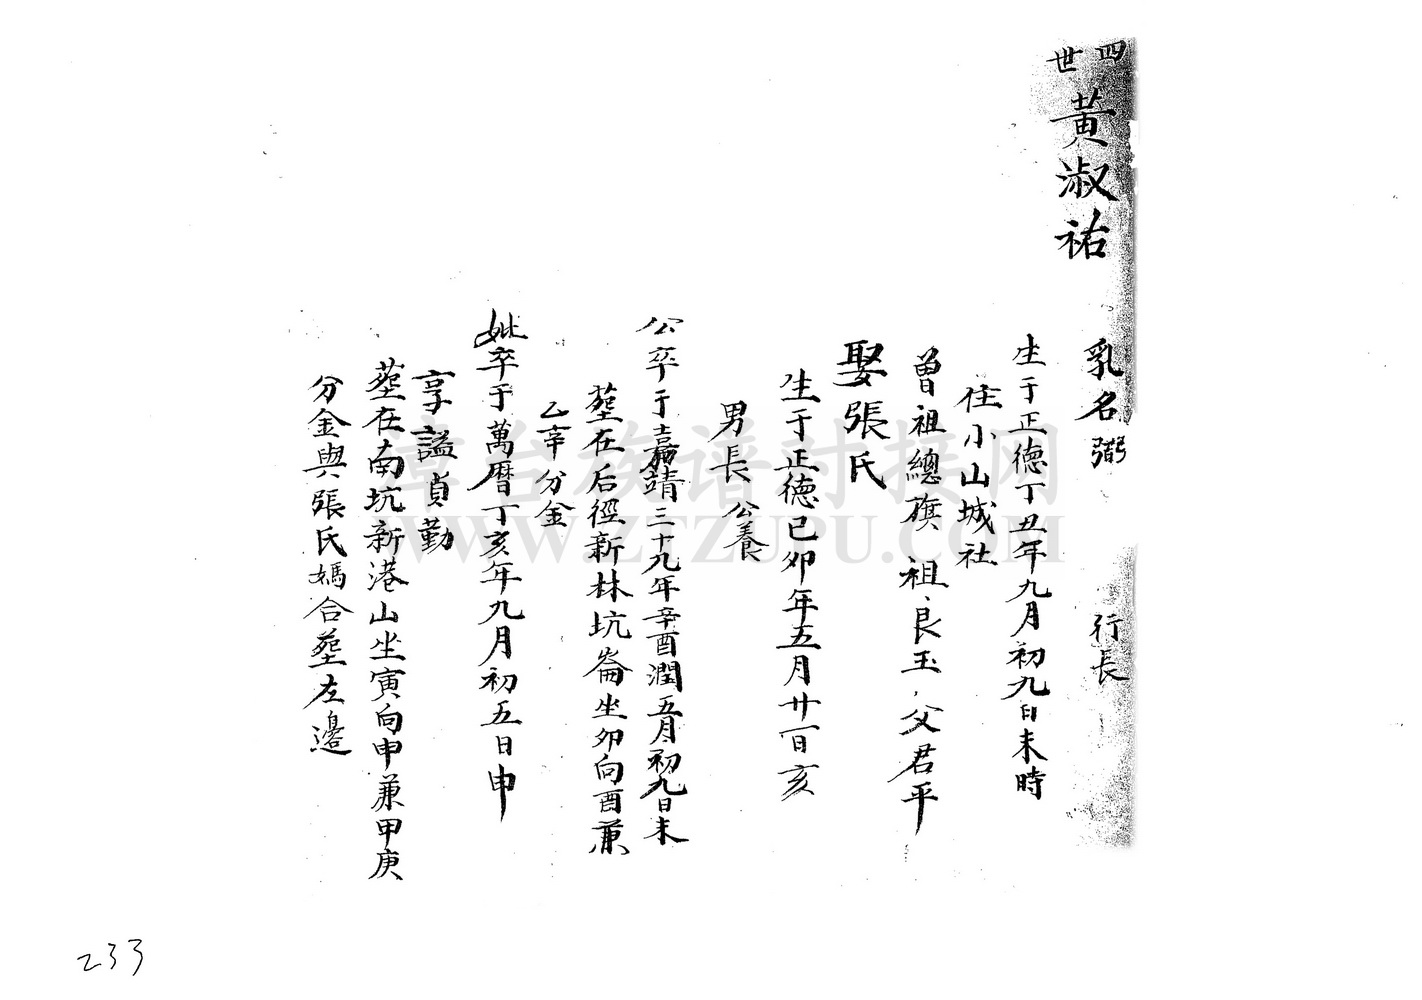 四世
黃淑祐
乳名弼 行長
生于正德丁丑年九月初九日未時
住小山城社
曾祖總旗 祖良玉 父君平
娶張氏
生于正德己卯年五月廿一日亥
男長公養
公卒于嘉靖三十九年辛酉潤五月初九日未
塟在后徑新林坑崙坐卯向酉兼
乙辛分金
妣卒于萬曆丁亥年九月初五日申
享謚貞勤
塟在南坑新港山坐寅向申兼甲庚
分金與張氏媽合塟左邊
漳台族谱对接网
WWW.ZTZUPU.COM
233